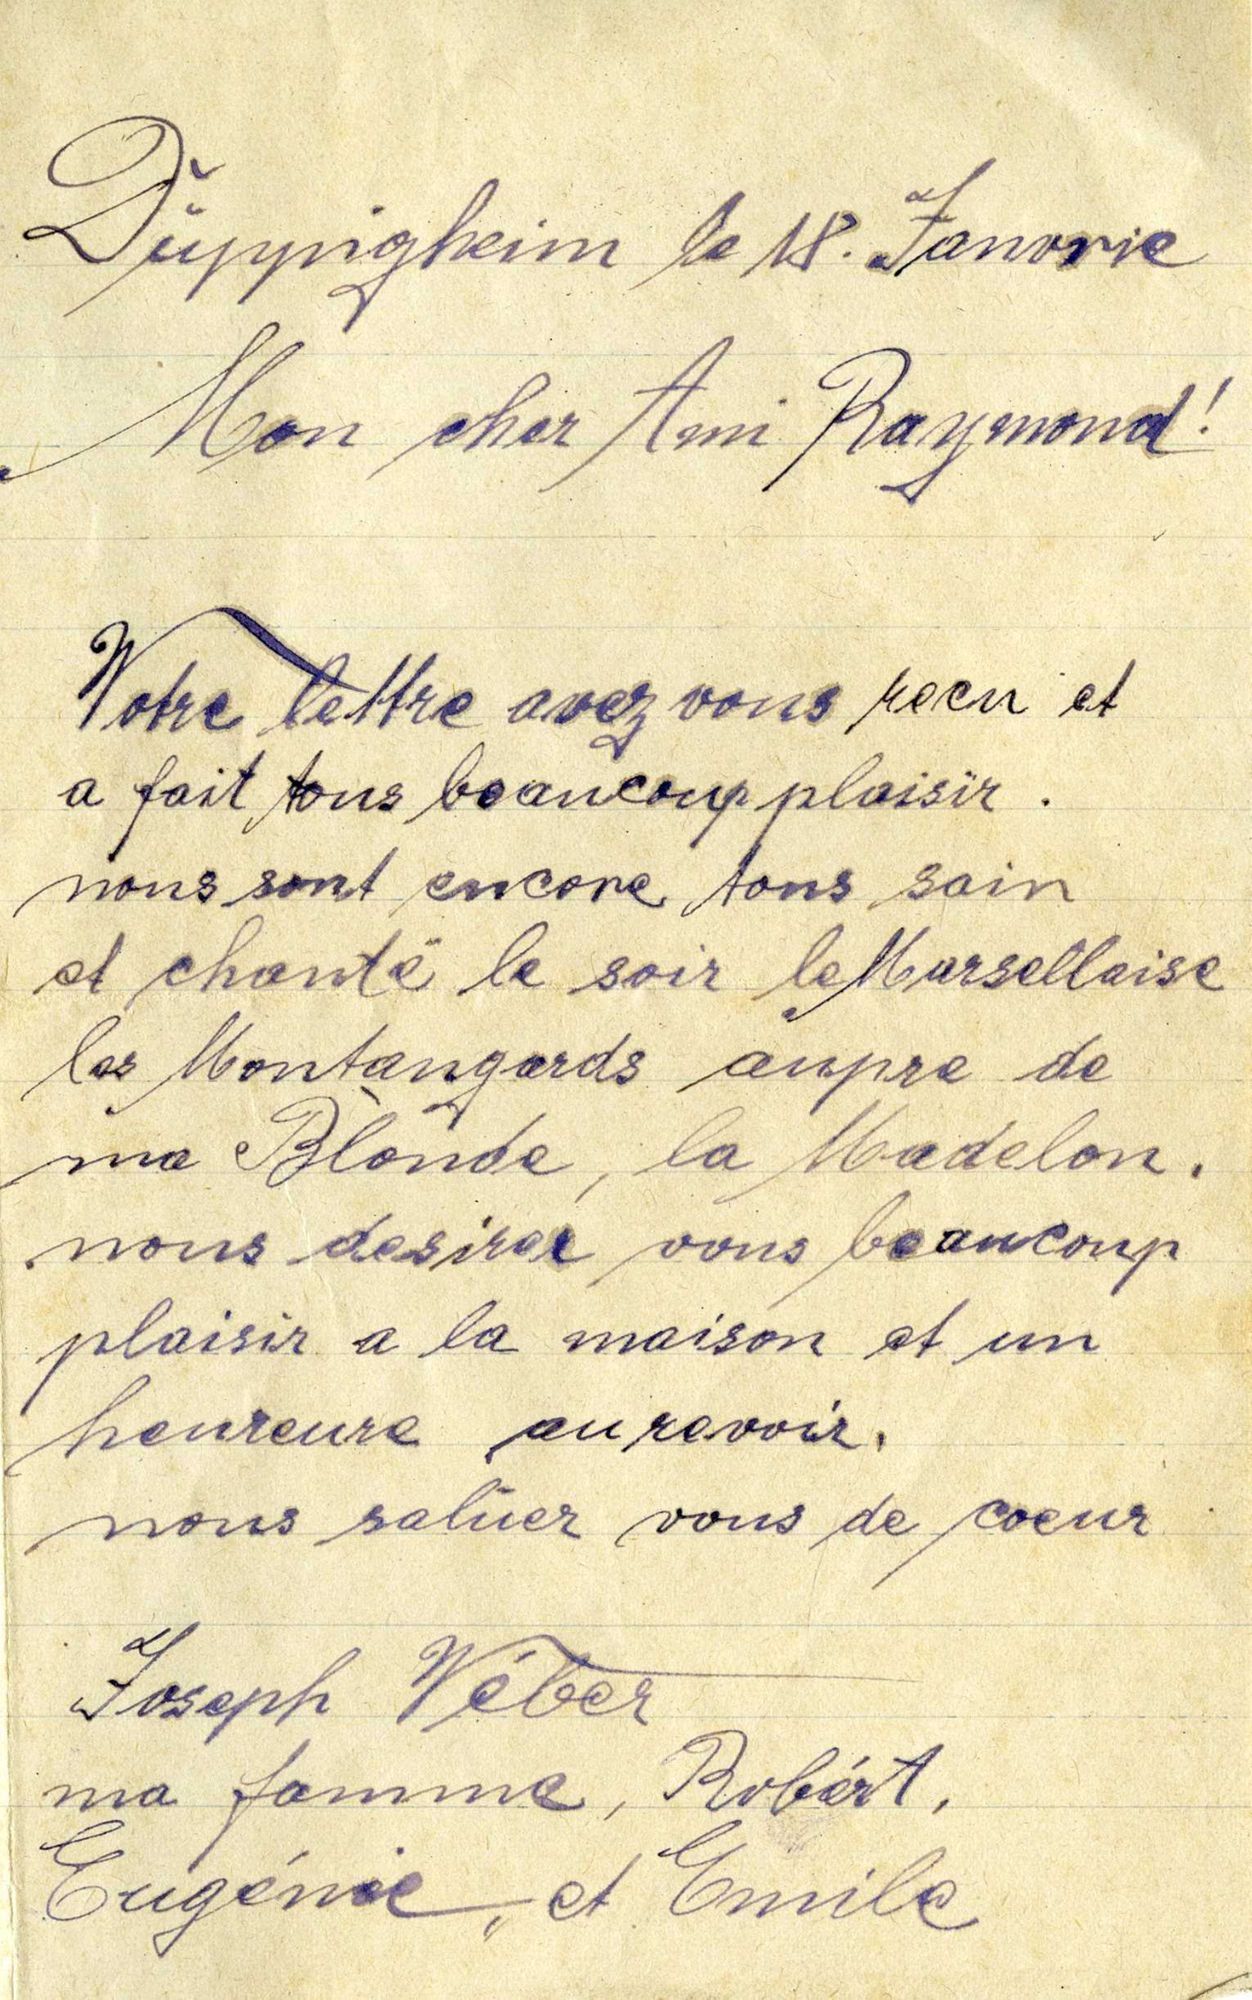 Düppigheim le 18. Janvrie
Mon cher Ami Raymond!
Votre lettre avez vous recu et
a fait tous beaucoup plaisir.
nous sont encore tous sain
et chanté le soir le Marsellaise
les Montangards aupre de
ma Blonde, la Madelon.
nous desirer vous beaucoup
plaisir a la maison et un
heureure au revoir.
nous salüer vous de coeur
Joseph Wéber
ma famme, Robért,
Eugénie, et Emile